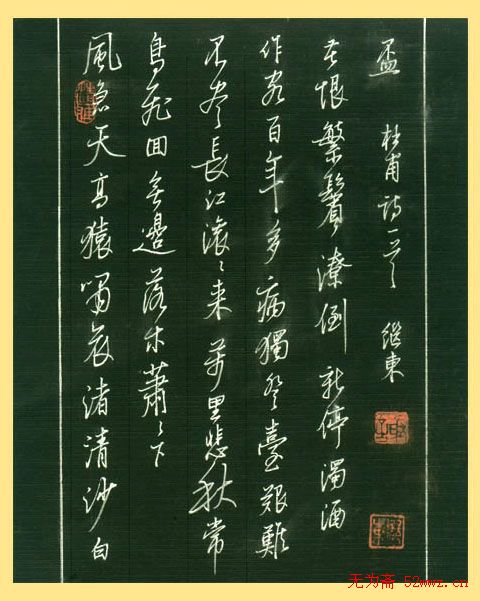 風急天高猿嘯哀渚清沙白
鳥飛回無邊落木蕭〻下
不盡長江滚〻来萬里悲秋常
作客百年多病獨登臺艱難
苦恨繁鬢潦倒新停濁酒
盃 杜甫詩一首 继東
无为斋 52wwz.cn